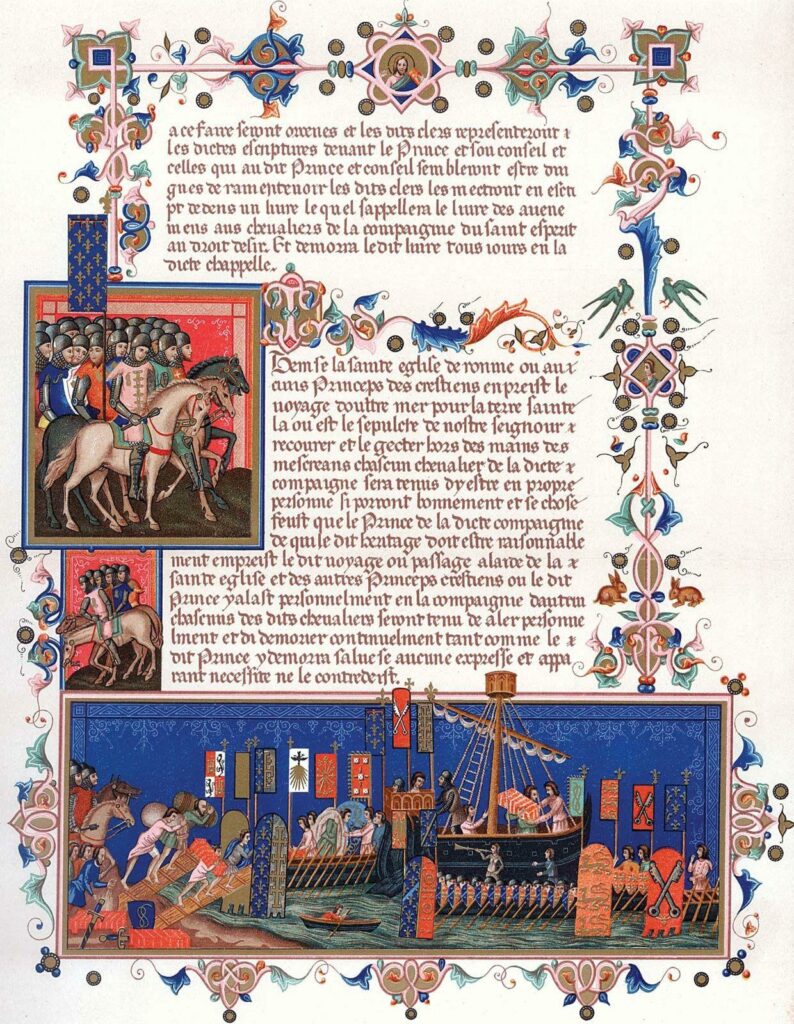 a ce faire seront ordenes et les dits clers representeront ⁊
les dictes escriptures devant le Prince et son conseil et
celles qui au dit Prince et conseil sembleront estre dui
gnes de ramentenoir les dits clers les mectront en escri
pt dedens un livre le quel sappellera le livre des avene
mens aus chevaliers de la compaignie du saint esperit
au droit desir. Et demorra le dit livre tous iours en la
dicte chappelle.
Item se la sainte eglise de romme ou aux
cuns Princeps des crestiens enpreist le
voyage doultre mer pour la terre sainte
la ou est le sepulcre de nostre seignour ⁊
recourer et le gecter hors des mains des
mescreans chascun chevalier de la dicte ⁊
compaignie sera tenus dy estre en propre
personne si porront bonnement et se chose
feust que le Prince de la dicte compaignie
de qui le dit heritage doit estre raisonnable
ment empreist le dit voyage ou passage a laide de la ⁊
sainte eglise et des autres Princeps crestiens ou le dit
Prince y alast personnelment en la compaignie dautrui
chascuns des dits chevaliers seront tenu de aler personne
lment et di demorer continuelment tant comme le ⁊
dit Prince y demorra salue se aucune expresse et appa
rant necessite ne le contredeist.